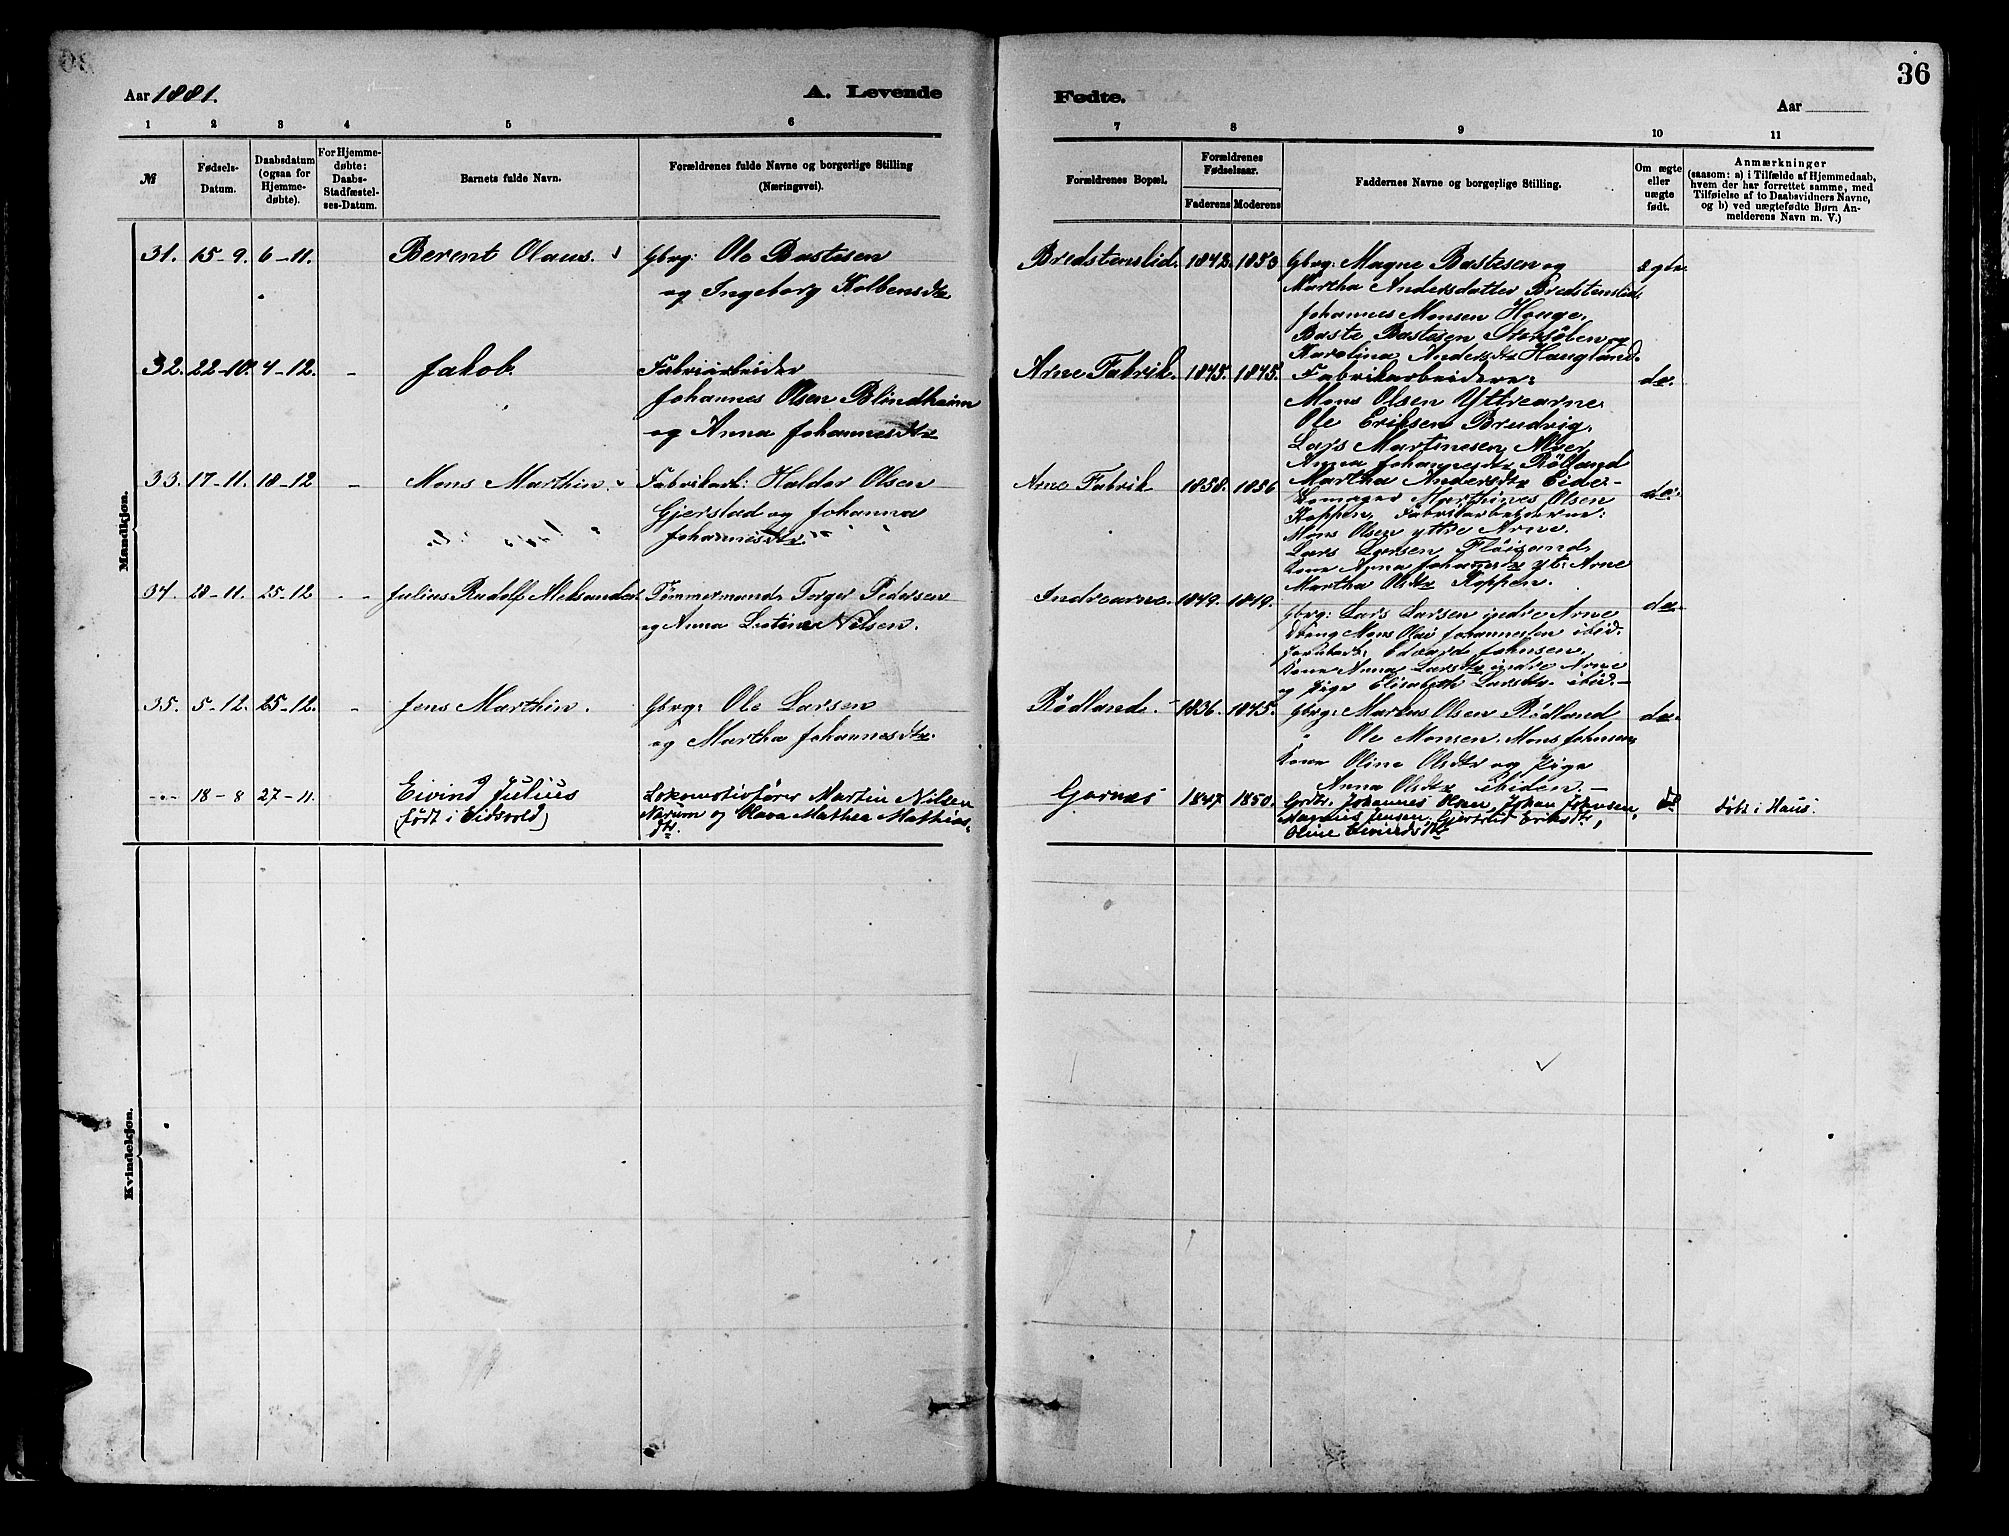 Aar 1881.
A. Levende
Fødte.
Aar
36
1 2 3 4 5 6 7 8 9 10 11
№
Fødsels-
Datum.
Daabsdatum
(ogsaa for
Hjemme-
døbte).
For Hjemme-
døbte:
Daabs-
Stadfæstel-
ses-Datum.
Barnets fulde Navn.
Forældrenes fulde Navne og borgerlige Stilling
(Næringsvei).
Forældrenes Bopæl.
Forældrenes
Fødselsaar.
Faderens Moderens
Faddernes Navne og borgerlige Stilling.
Om ægte
eller
uægte
født.
Anmærkninger
(saasom: a) i Tilfælde af Hjemmedaab,
hvem der har forrettet samme, med
Tilføielse af to Daabsvidners Navne,
og b) ved uægtefødte Børn An-
melderens Navn m. V.)
Mandkjøn.
31. 15-9. 6-11. Berent Olaus. Gbrg: Ole Bastesen
og Ingeborg Kolbensdtr
Bredstenslid. 1842. 1853 Gbrg: Magne Bastesen og
Martha Andersdatter Bredstenslid,
Johannes Monsen Houge,
Baste Bastesen Storsölen og
Karolina Andersdtr Haugland.
ægte
32. 22-10. 4-12. - Jakob. Fabriarbeider
Johannes Olsen Blindheim
og Anna Johannesdtr
Arne Fabrik. 1845. 1845. Fabrikarbeidere:
Mons Olsen Yttrearne
Ole Eriksen Brudvig,
Lars Martinesen
Anna Johannesdtr
Martha Andersdtr
do.
33. 17-11. 18-12 - Mons Marthin. Fabrikarb: Haldor Olsen
Gjerstad og Johanna
Johannesdtr.
Arne Fabrik 1858. 1856
Marthines Olsen
Koppen, Fabrikarbeiderne:
Mons Olsen ytre Arne.
Lars Larsen
Kone Anna Johannesdtr yt: Arne
Martha Olsdtr Koppen.
do.
34. 28-11. 25-12 - - Julius Rudolf Tømmermand Torger Pedersen
og Anna Nilsen.
Indrearne. 1849. 1849. Gbrg: Lars Larsen indre Arne
Mons Olai Johannesen ibid.
Edvard Johnsen,
Kone Anna Larsdtr indre Arne
og Pige Elisabeth Larsdtr. ibid.-
do.
35. 5-12. 25-12. - Jens Marthin. Gbrg: Ole Larsen
og Martha Johannesdtr.
Rødland. 1836. 1845. Gbrg: Markus Olsen Rødland
" Ole Monsen. Mons Johnsen,
Kone Oline Olsdtr og Pige
Anna Olsdtr ibiden.-
do.
18-8 27-11. Eivind Julius
(født i Eidsvold)
Lokomotivfører Martin Nilsen
Narum og Olava Mathea Mathias-
dtr.
Garnæs 1847 1850. Johannes Olsen, Johan Johnsen,
Magnus Jensen, Gjertrud Eriksdtr,
Oline Eivindsdtr
do
Døbt i Haus.
Kvindekjøn.